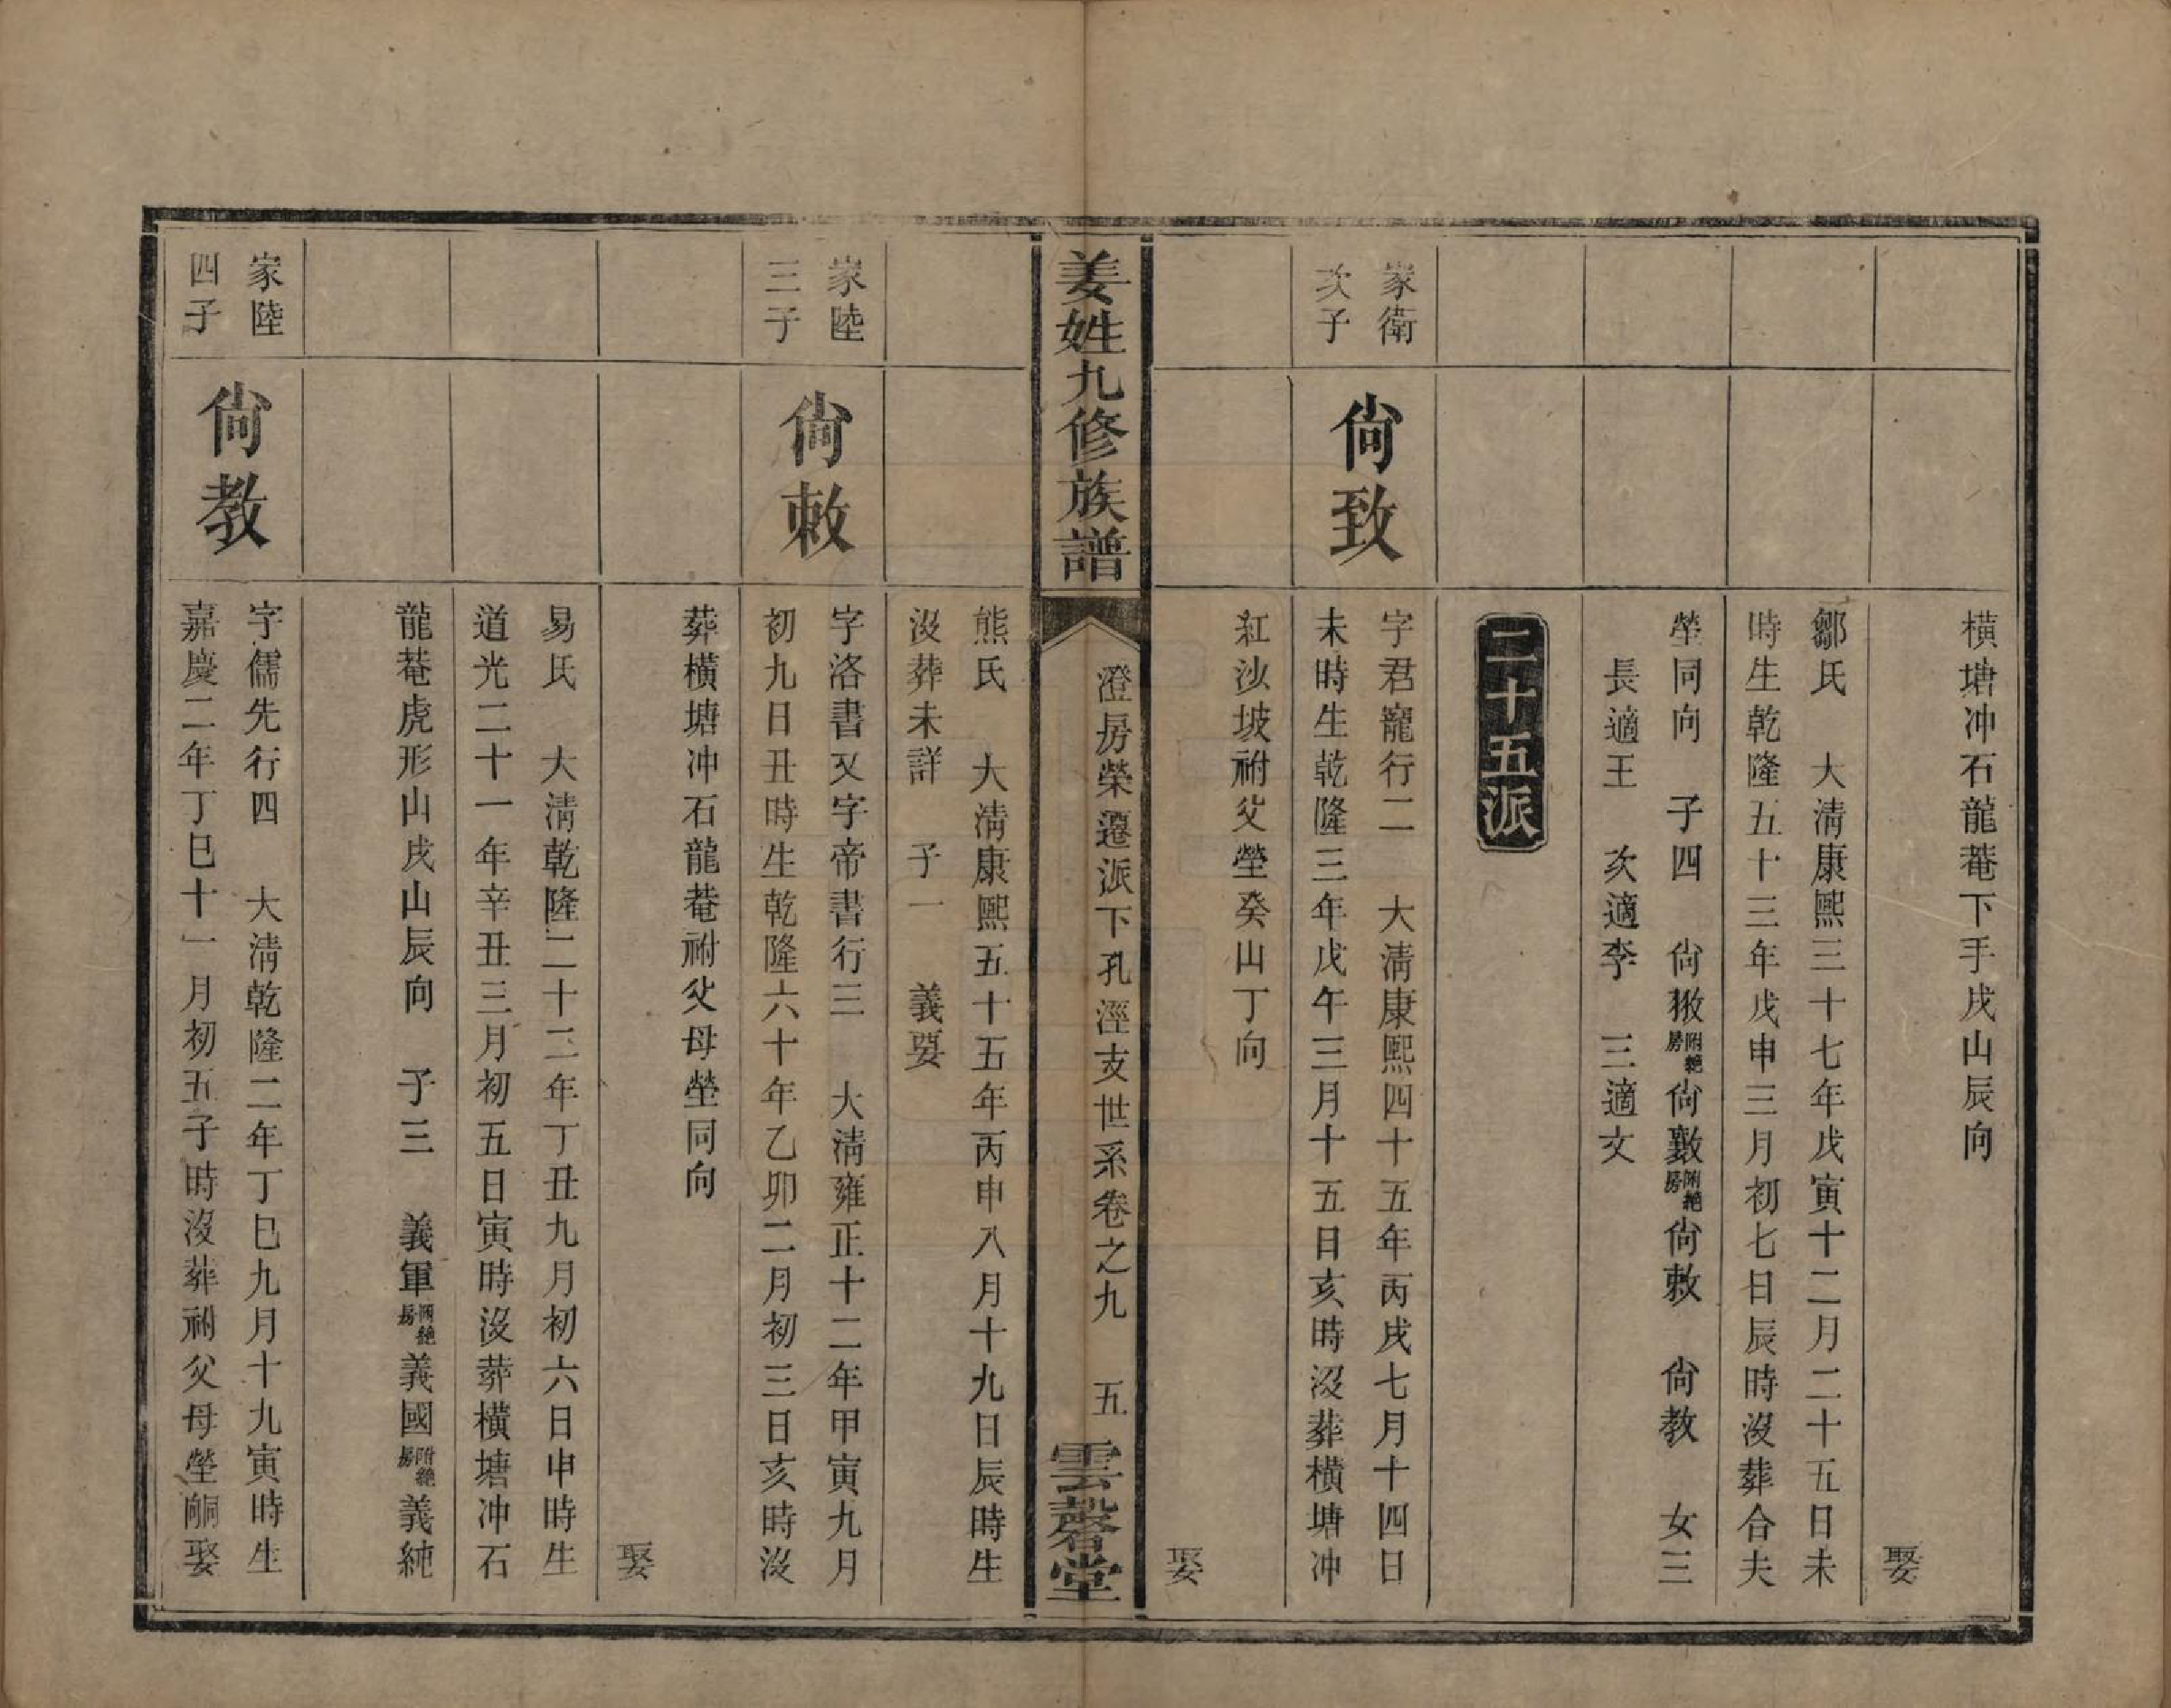 橫塘冲石龍菴下手戌山辰向
娶
鄒氏　大淸康熙三十七年戊寅十二月二十五日未
時生乾隆五十三年戊申三月初七日辰時沒葬合夫
塋同向　子四　尙掓附絕房尙斅附絕房尙敕　尙教　女三
長適王　次適李　三適文
二十五派
家衛
次子
尙致
字君寵行二　大淸康熙四十五年丙戌七月十四日
未時生乾隆三年戊午三月十五日亥時沒葬橫塘冲
紅沙坡祔父塋癸山丁向
娶
姜姓九修族譜
澄房榮遷派下孔涇支世系卷之九　五
雲磬堂
熊氏　大淸康熙五十五年丙申八月十九日辰時生
沒葬未詳　子一　義㛄
家陸
三子
尙敕
字洛書又字帝書行三　大淸雍正十二年甲寅九月
初九日丑時生乾隆六十年乙卯二月初三日亥時沒
葬橫塘冲石龍菴祔父母塋同向
娶
易氏　大淸乾隆二十二年丁丑九月初六日申時生
道光二十一年辛丑三月初五日寅時沒葬橫塘冲石
龍菴虎形山戌山辰向　子三　義軍附絕房義國附絕房義純
家陸
四子
尙教
字儒先行四　大淸乾隆二年丁巳九月十九寅時生
嘉慶二年丁巳十一月初五子時沒葬祔父母塋峒娶